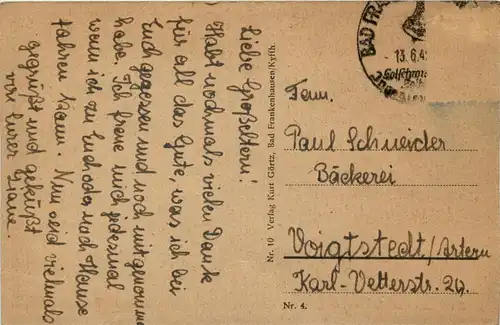 Liebe Großeltern!
Habt nochmals vielen Dank
für all das Gute, was ich bei
Euch gegessen und noch mitgenommen
habe. Ich freue mich jedesmal
wenn ich zu Euch oder nach Hause
fahren kann. Nun seid vielmals
gegrüßt und geküßt
von Eurer
Nr. 10 Verlag Kurt Görtz, Bad Frankenhausen/Kyffh.
BAD FRA
13.6.4
Fam.
Paul Schneider
Bäckerei
Voigtstedt/Artern
Karl-Vetterstr. 29.
Nr. 4.